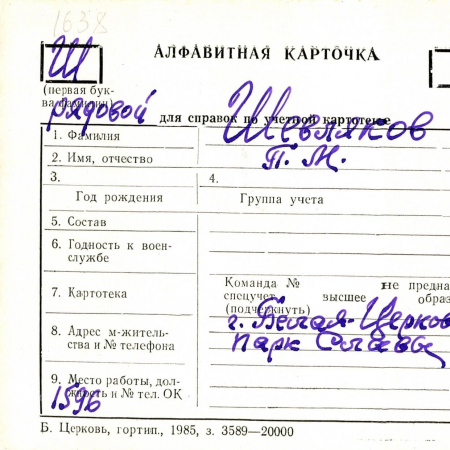 1638
АЛФАВИТНАЯ КАРТОЧКА
Ш
(первая бук-
ва фамилии)
рядовой
для справок по учетной картотеке
1. Фамилия Шевляков
2. Имя, отчество П. М.
3.
Год рождения
4.
Группа учета
5. Состав
6. Годность к воен-
службе
7. Картотека
Команда № не предна
спецучет, высшее образ
(подчеркнуть)
8. Адрес м-житель-
ства и № телефона
г. Белая-Церков
парк Славы
9. Место работы, дол-
жность и № тел. ОК
1596
Б. Церковь, гортип., 1985, з. 3589—20000